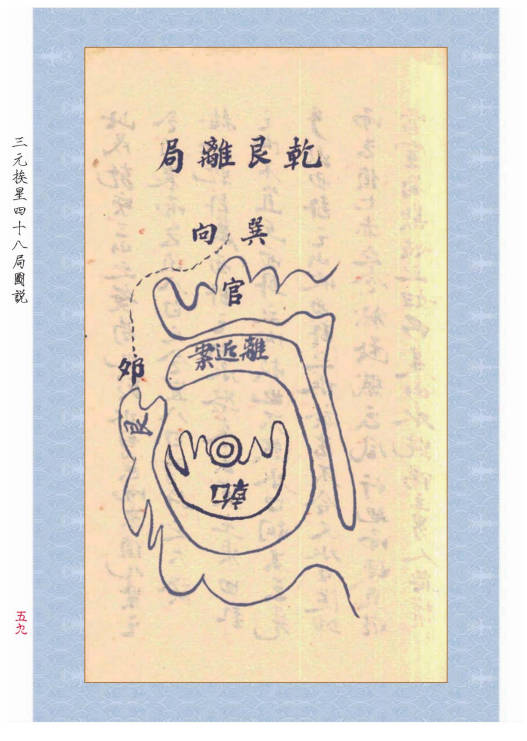 三元挨星四十八局圖説
乾艮離局
巽向
官
離近案
艮
五九